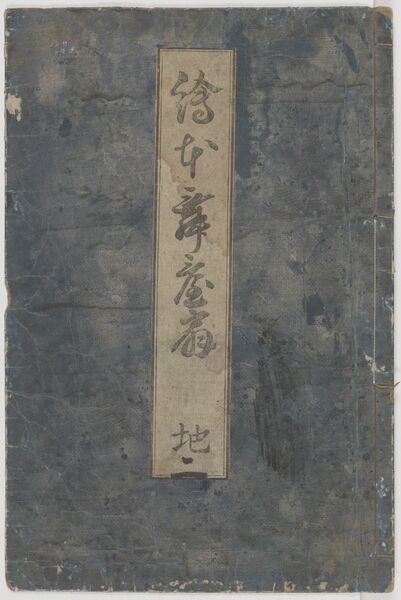 繪本舞臺扇 地